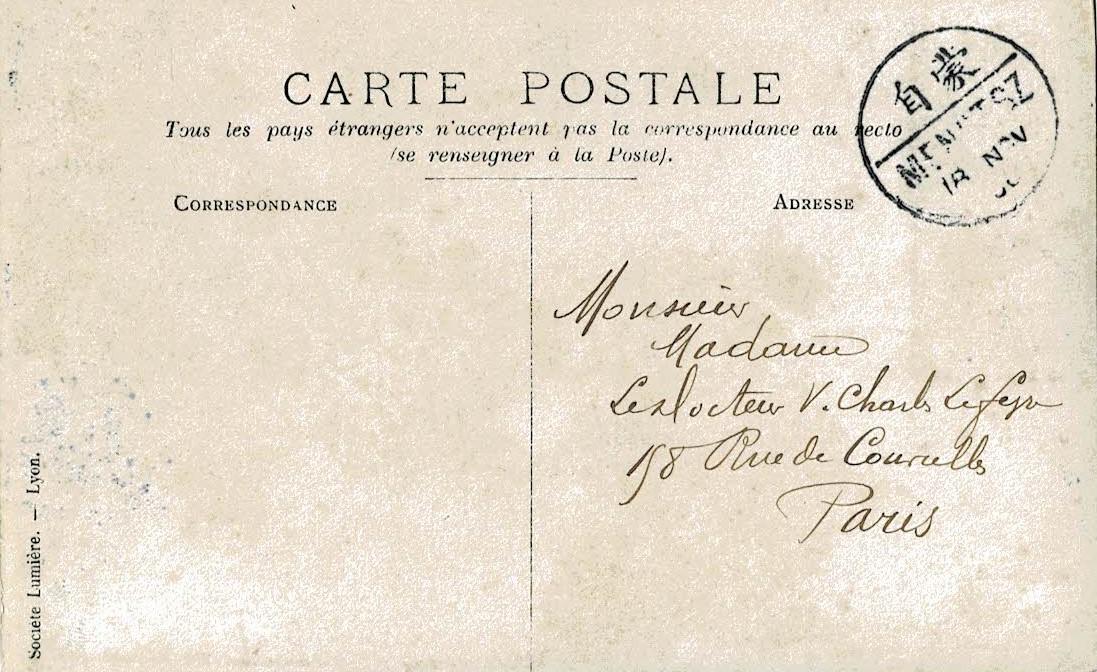 CARTE POSTALE
Tous les pays étrangers n'acceptent pas la correspondance au recto
(se renseigner à la Poste).
CORRESPONDANCE
ADRESSE
蒙自
MENGTSZ
18 NOV
Monsieur
Madame
Le docteur V. Charles
158 Rue de Courcelles
Paris
Société Lumière. — Lyon.